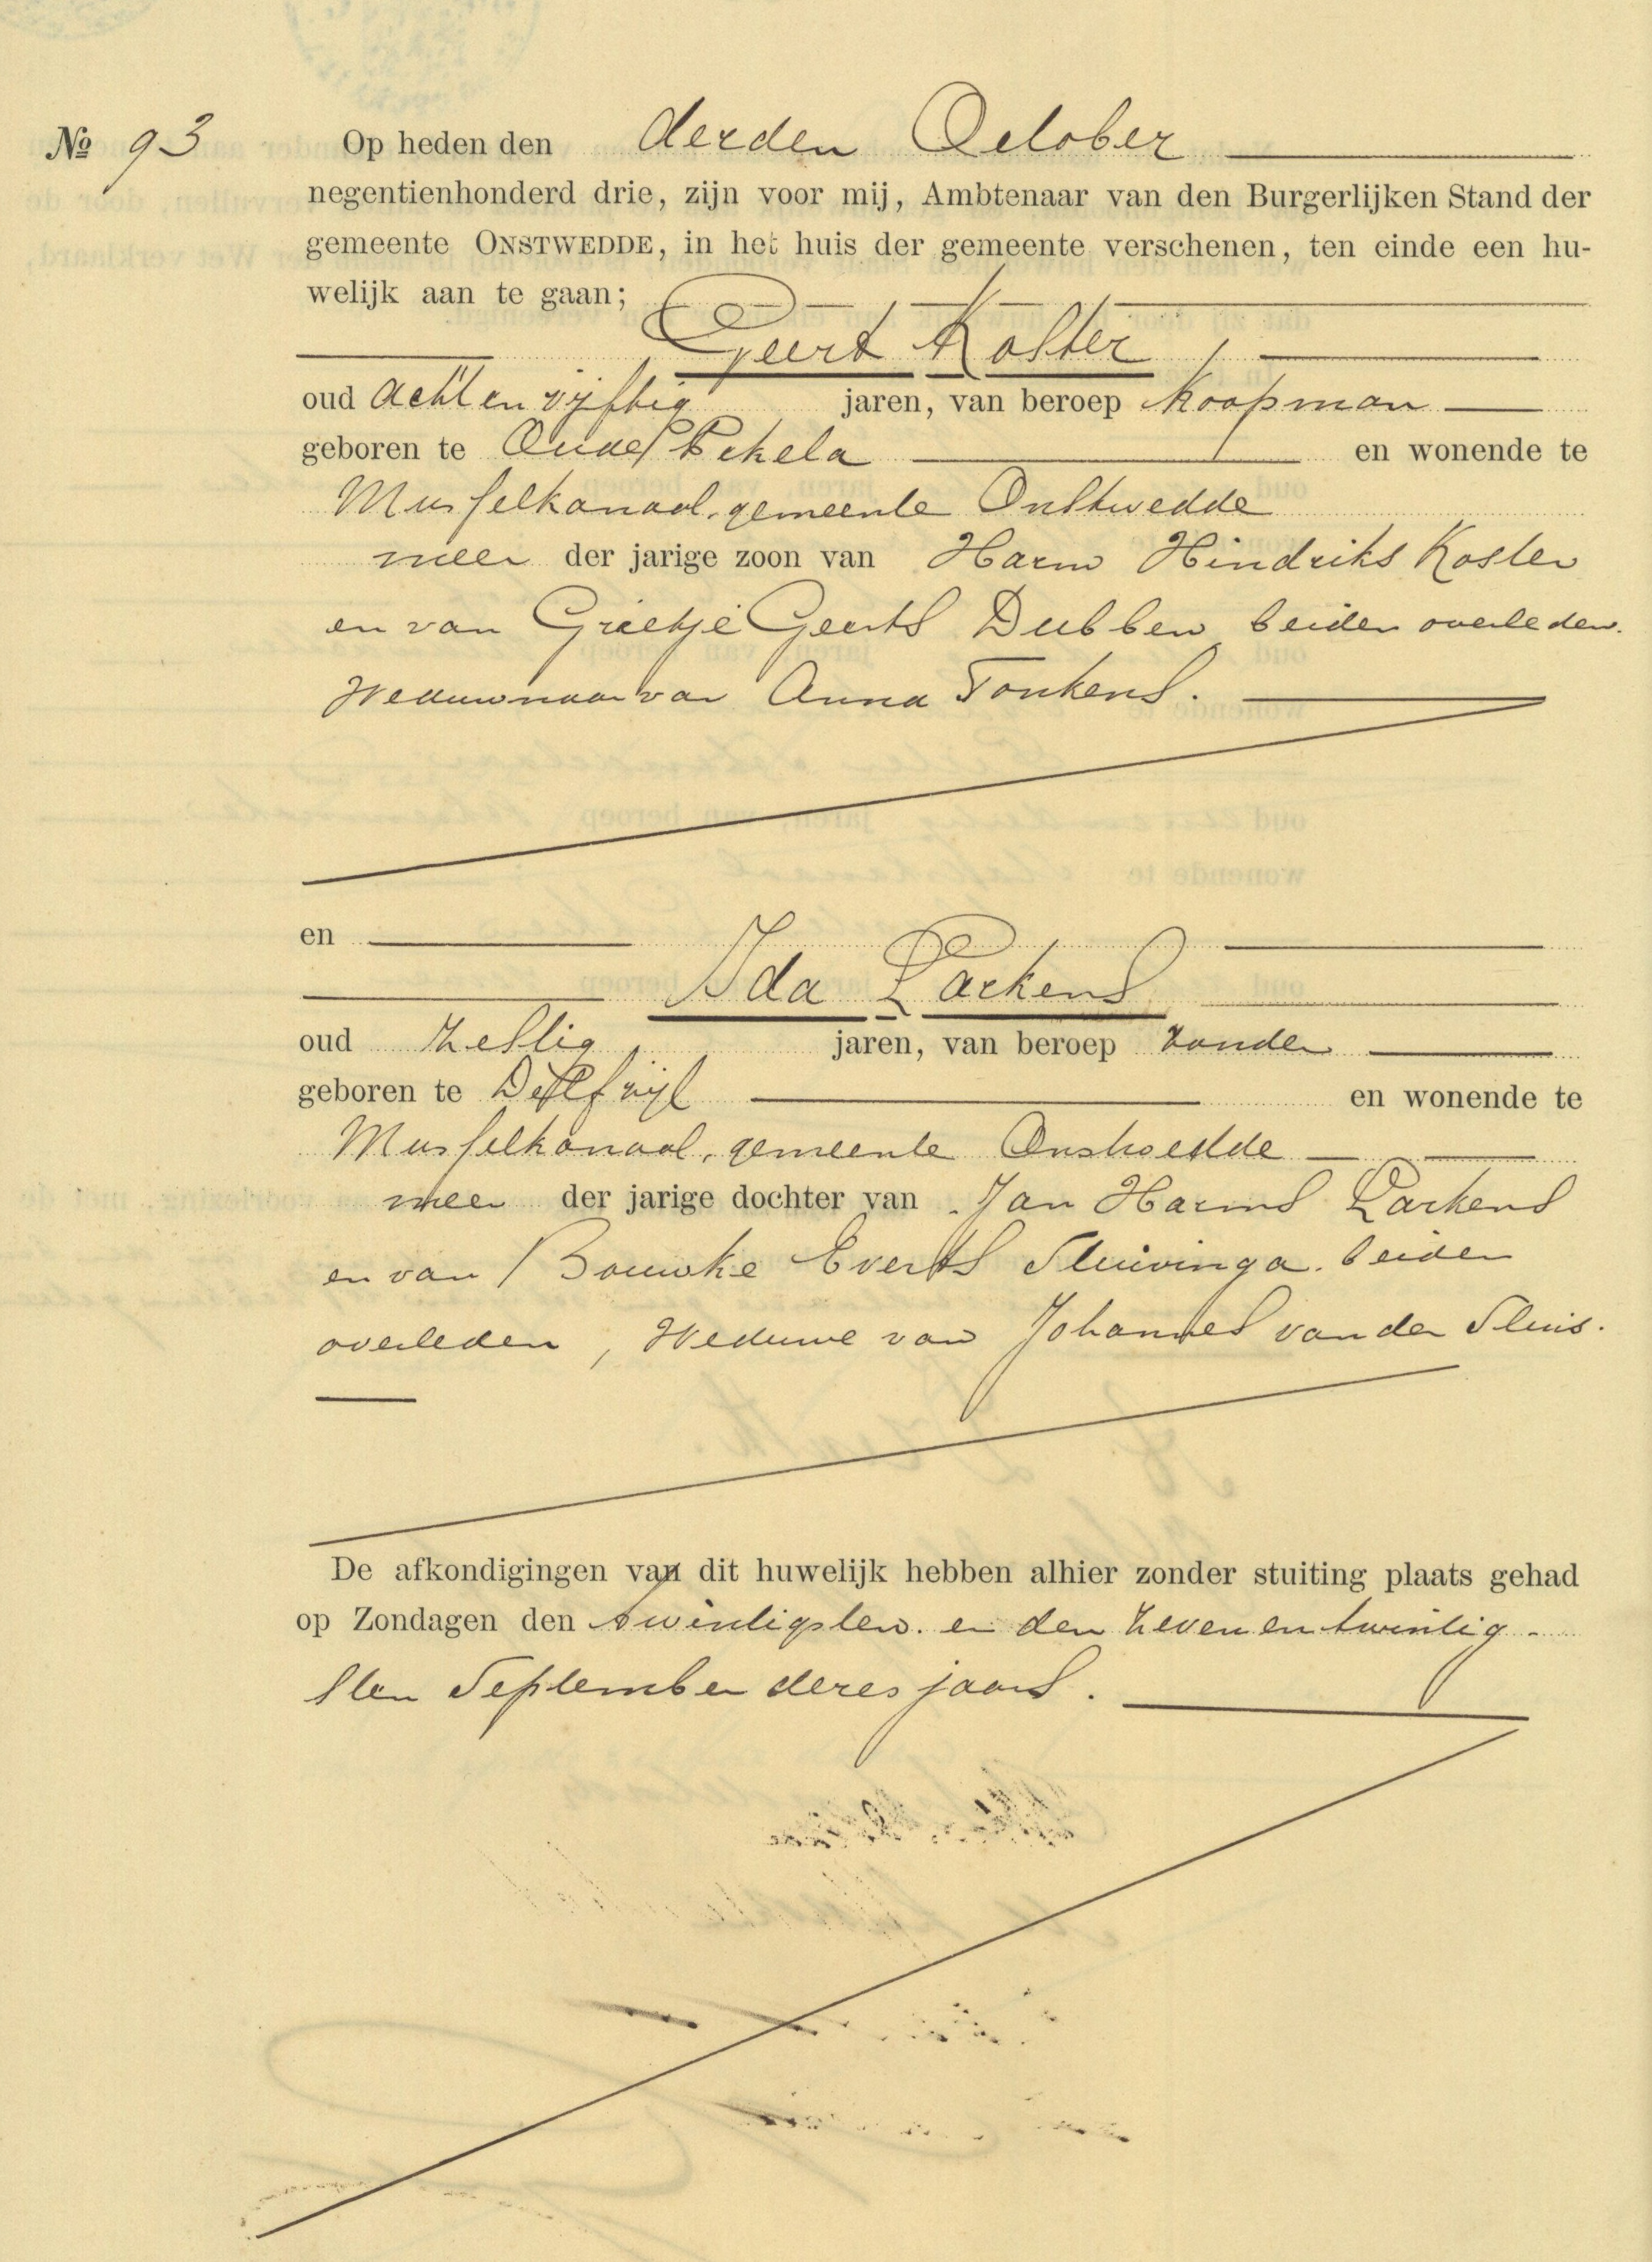 No 93 Op heden den derden October
negentienhonderd drie, zijn voor mij, Ambtenaar van den Burgerlijken Stand der
gemeente ONSTWEDDE, in het huis der gemeente verschenen, ten einde een hu-
welijk aan te gaan;
Geert Koster,
oud acht en vijftig jaren, van beroep koopman
geboren te Oude Pekela en wonende te
Musselkanaal, gemeente Onstwedde
meer der jarige zoon van Harm Hindriks Koster
en van Grietje Geerts Dubben, beiden overleden.
Weduwnaar van Anna Tonkens.
en
Ida Larkens
oud zestig jaren, van beroep zonder
geboren te Delfzijl en wonende te
Musselkanaal, gemeente Onstwedde
meer der jarige dochter van Jan Harms Larkens
en van Bouwke Everts Sluivinga. beiden
overleden, Weduwe van Johannes van der Sluis.
De afkondigingen van dit huwelijk hebben alhier zonder stuiting plaats gehad
op Zondagen den twintigsten. en den zeven en twintig-
sten September dezes jaars.